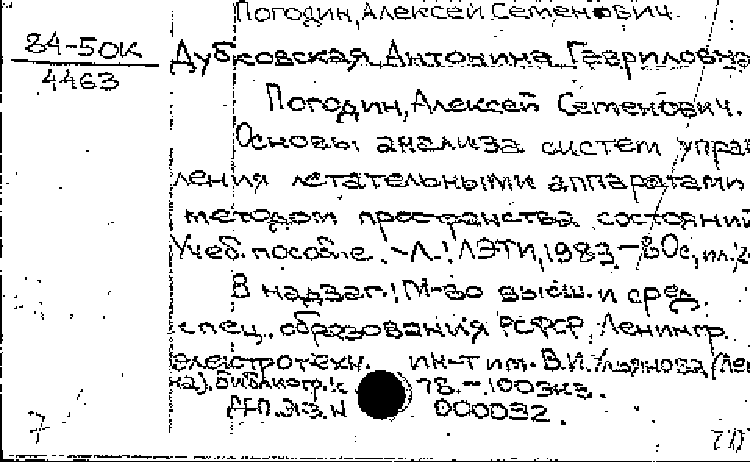 Погодин, Алексей Семенович.
84-5ОК
4463
Дубковская, Антонина Гавриловна
Погодин, Алексей Семенович.
Основы анализа систем управ
ления летательными аппаратами
методом пространства состояний
Учеб. пособие. - Л.: ЛЭТИ, 1983. - 80с, ил.
В надзаг.: М-во высш. и сред.
спец. образования РСФСР, Ленингр.
электротехн. ин-т им. В.И. Ульянова (Ле
на). Библиогр.: с 78. - 100экз.
000032.
7